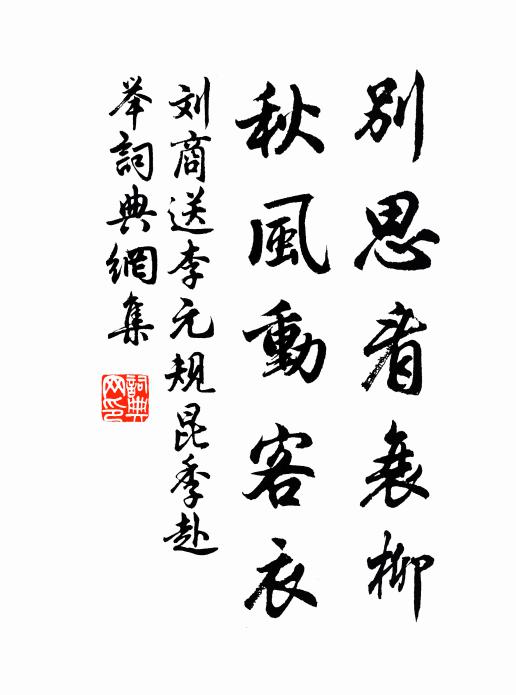 别思看衰柳
秋風動客衣
刘商送李元规昆季赴
举詞典網集
詞典网印